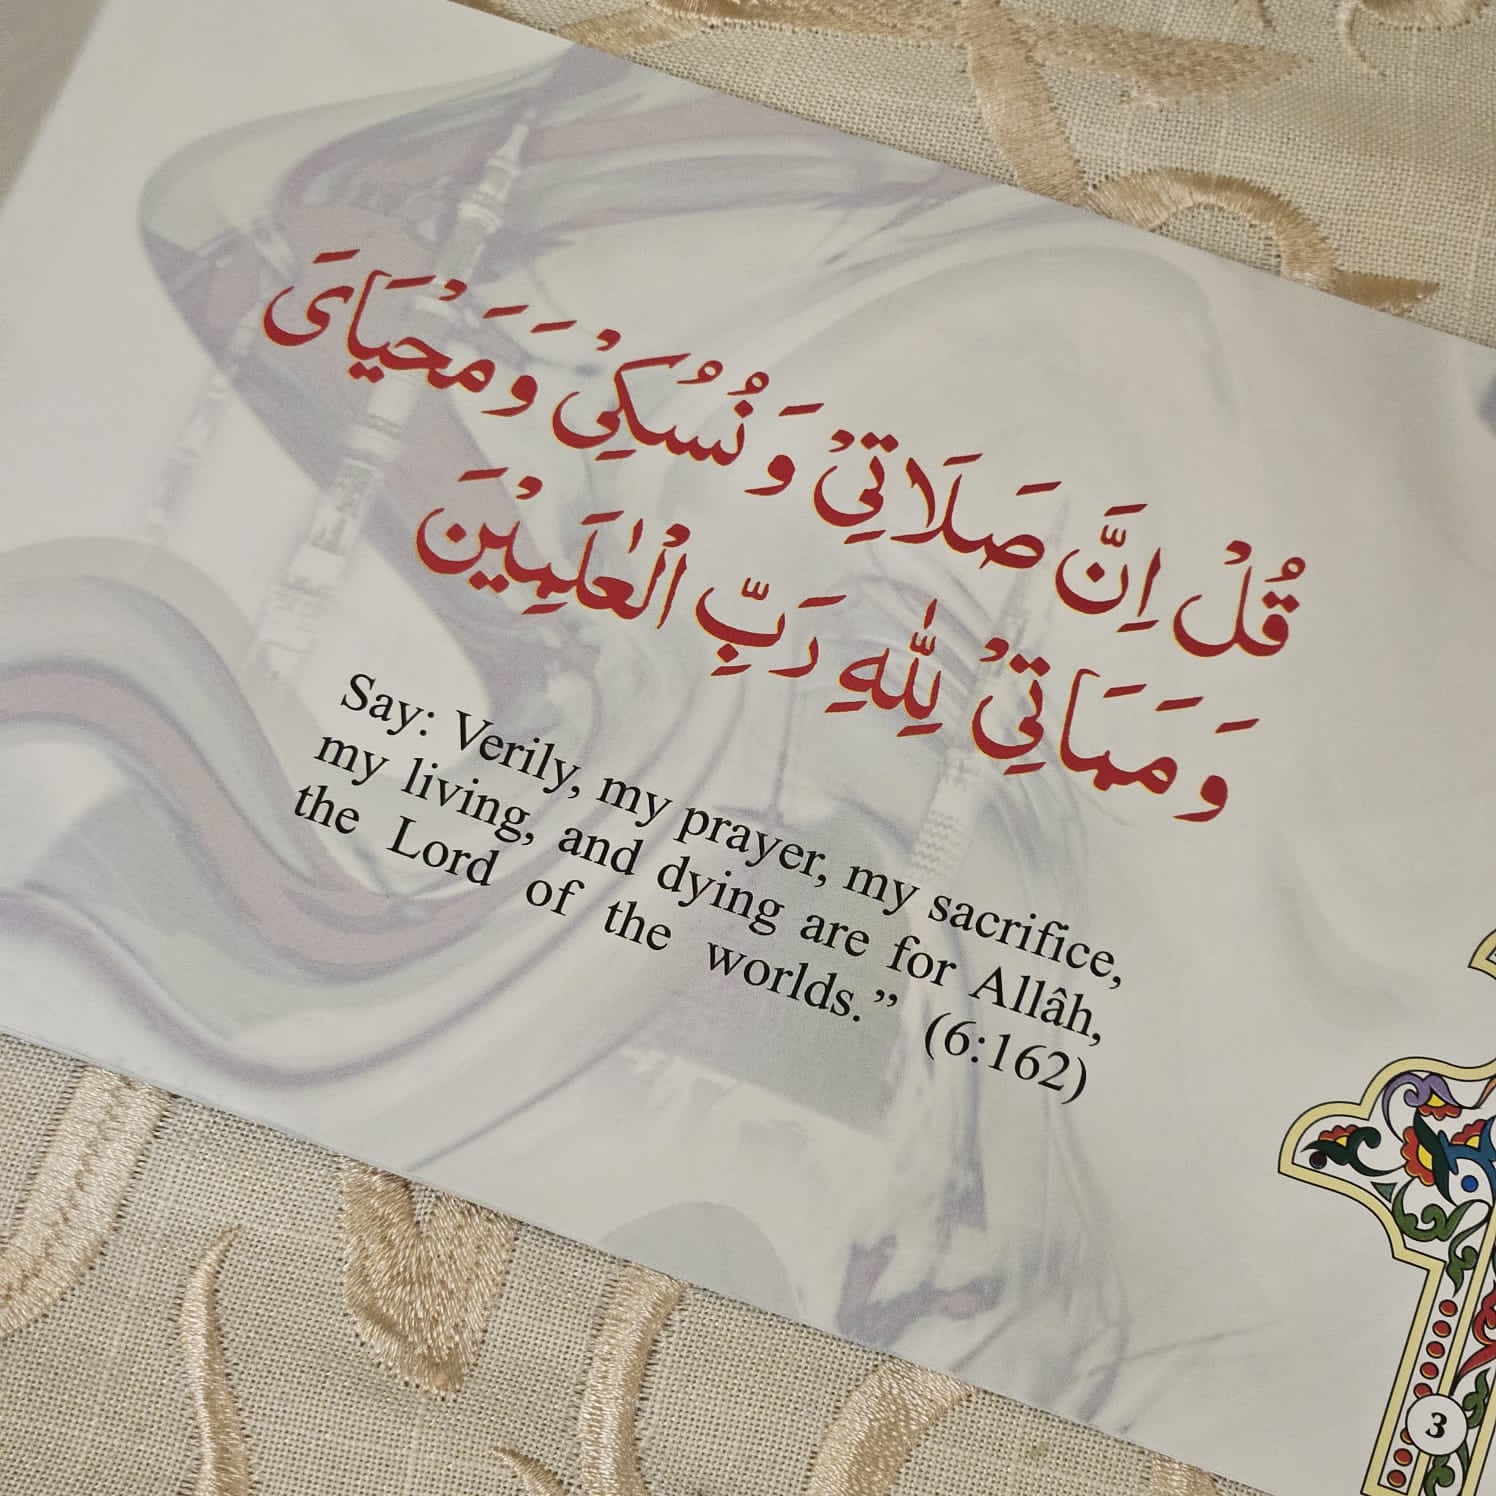 قُلْ اِنَّ صَلَاتِيْ وَ نُسُكِيْ وَ مَحْيَايَ
وَ مَمَاتِيْ لِلّٰهِ رَبِّ الْعٰلَمِيْنَ
Say: Verily, my prayer, my sacrifice,
my living, and dying are for Allâh,
the Lord of the worlds.” (6:162)
3